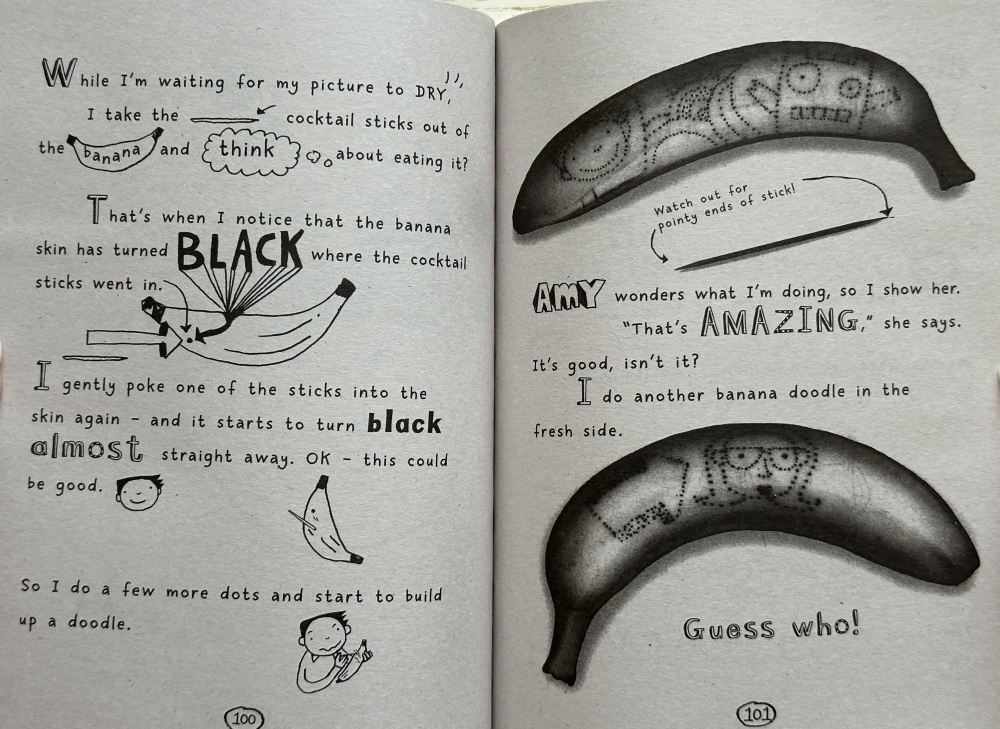 While I'm waiting for my picture to DRY,
I take the cocktail sticks out of
the banana and think about eating it?
That's when I notice that the banana
skin has turned BLACK where the cocktail
sticks went in.
I gently poke one of the sticks into the
skin again – and it starts to turn black
almost straight away. OK – this could
be good.
So I do a few more dots and start to build
up a doodle.
100
Watch out for
pointy ends of stick!
AMY wonders what I'm doing, so I show her.
"That's AMAZING," she says.
It's good, isn't it?
I do another banana doodle in the
fresh side.
Guess who!
101